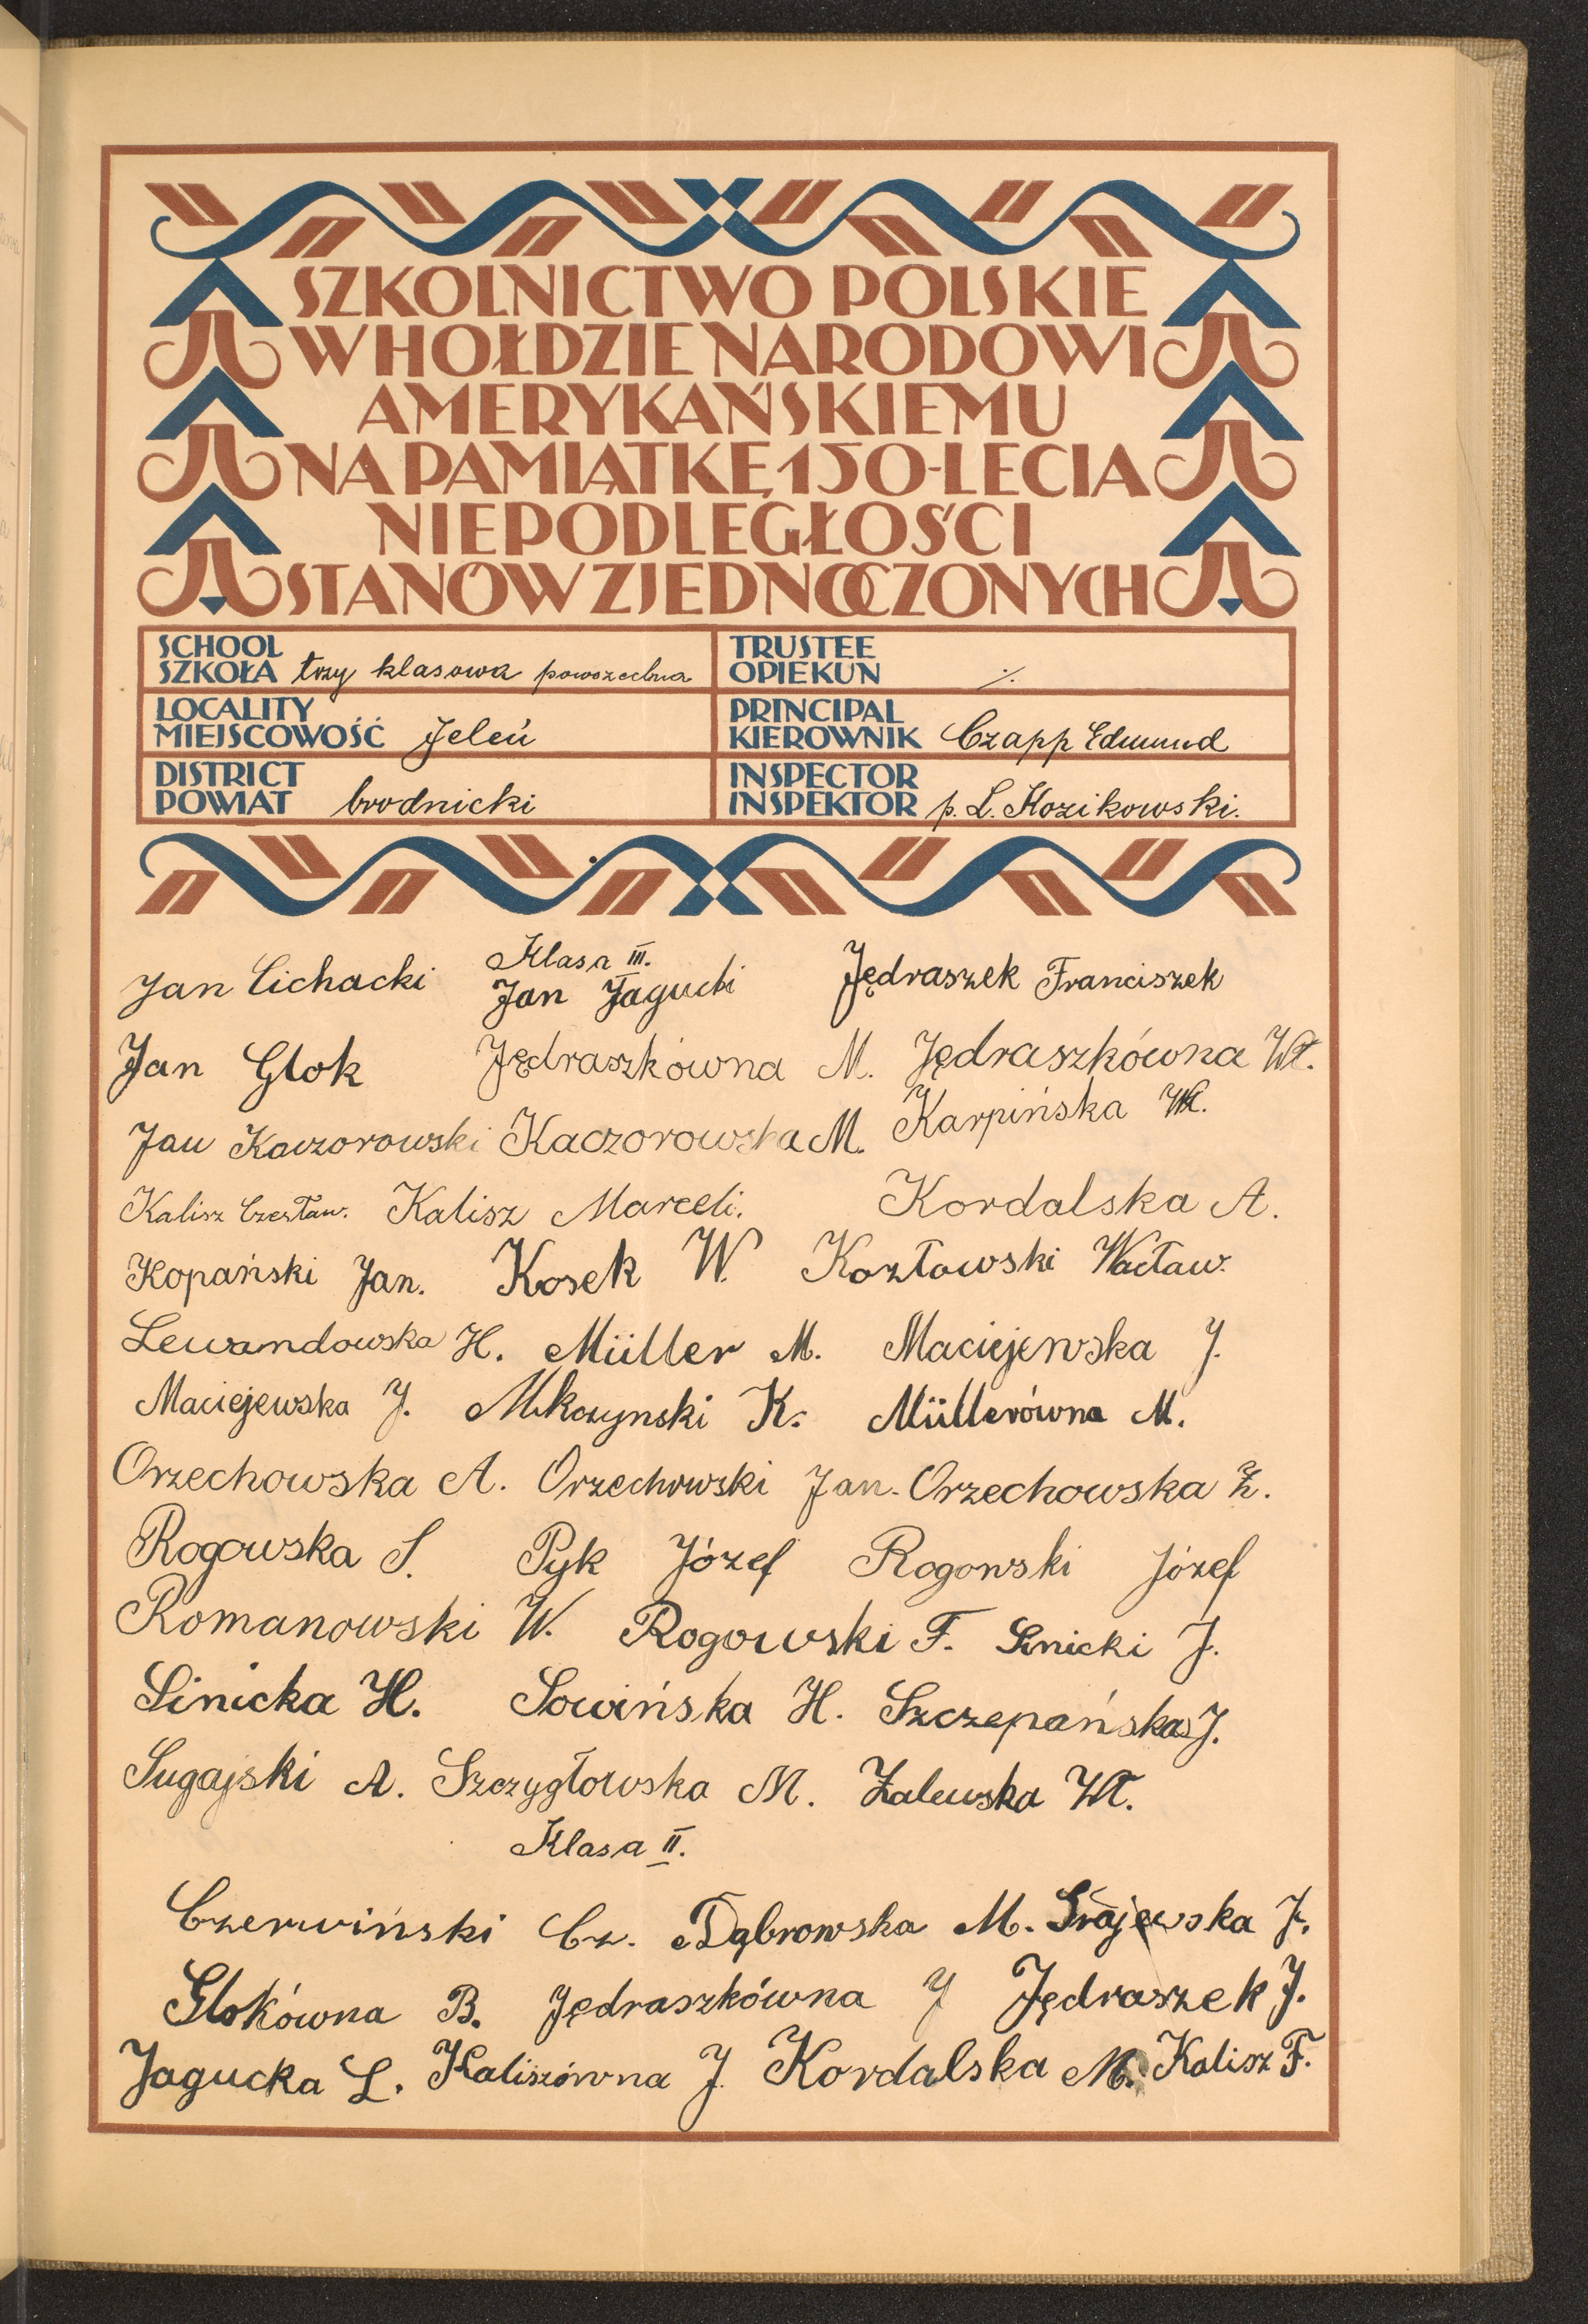 SZKOLNICTWO POLSKIE
W HOŁDZIE NARODOWI
AMERYKAŃSKIEMU
NA PAMIĄTKĘ 150-LECIA
NIEPODLEGŁOŚCI
STANÓW ZJEDNOCZONYCH
SCHOOL
SZKOŁA trzy klasowa powszechna
TRUSTEE
OPIEKUN ./.
LOCALITY
MIEJSCOWOŚĆ Jeleń
PRINCIPAL
KIEROWNIK Czapp Edmund
DISTRICT
POWIAT brodnicki
INSPECTOR
INSPEKTOR p. L. Kozikowski.
Klasa III.
Jan Cichacki Jan Jagucki Jędraszek Franciszek
Jan Glok Jędraszkówna M. Jędraszkówna Wł.
Jan Kaczorowski Kaczorowska M. Karpińska Wł.
Kalisz Czesław. Kalisz Marceli. Kordalska A.
Kopański Jan. Kosek W. Kozłowski Wacław.
Lewandowska H. Müller M. Maciejewska J.
Maciejewska J. K. Müllerówna M.
Orzechowska A. Orzechowski Jan. Orzechowska Z.
Rogowska S. Pyk Józef Rogowski Józef
Romanowski W. Rogowski F. Sinicki J.
Sinicka H. Sowińska H. Szczepańska J.
Sugajski A. Szczygłowska M. Zalewska Wł.
Klasa II.
Czerwiński Cz. Dąbrowska M. Grajewska J.
Glokówna B. Jędraszkówna J Jędraszek J.
Jagucka L. Kaliszówna J. Kordalska M. Kalisz F.